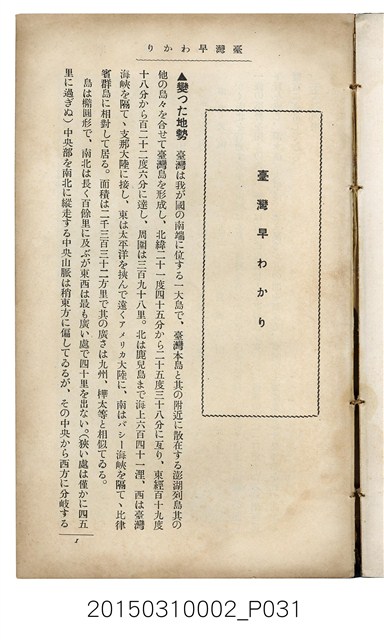 臺灣早わかり
臺灣早わかり
▲變つた地勢　臺灣は我が國の南端に位する一大島で、臺灣本島と其の附近に散在する澎湖列島其の
他の島々を合せて臺灣島を形成し、北緯二十一度四十五分から二十五度三十八分に亙り、東經百十九度
十八分から百二十二度六分に達し、周圍は三百九十八里。北は鹿兒島まで海上六百四十一浬、西は臺灣
海峽を隔てゝ支那大陸に接し、東は太平洋を挾んで遠くアメリカ大陸に、南はバシー海峽を隔てゝ比律
賓群島に相對して居る。面積は二千三百三十二方里で其の廣さは九州、樺太等と相似てゐる。
島は橢圓形で、南北は長く百餘里に及ぶが東西は最も廣い處で四十里を出ない。（狹い處は僅かに四五
里に過ぎぬ）中央部を南北に縱走する中央山脈は稍東方に偏してゐるが、その中央から西方に分岐する
1
20150310002_P031